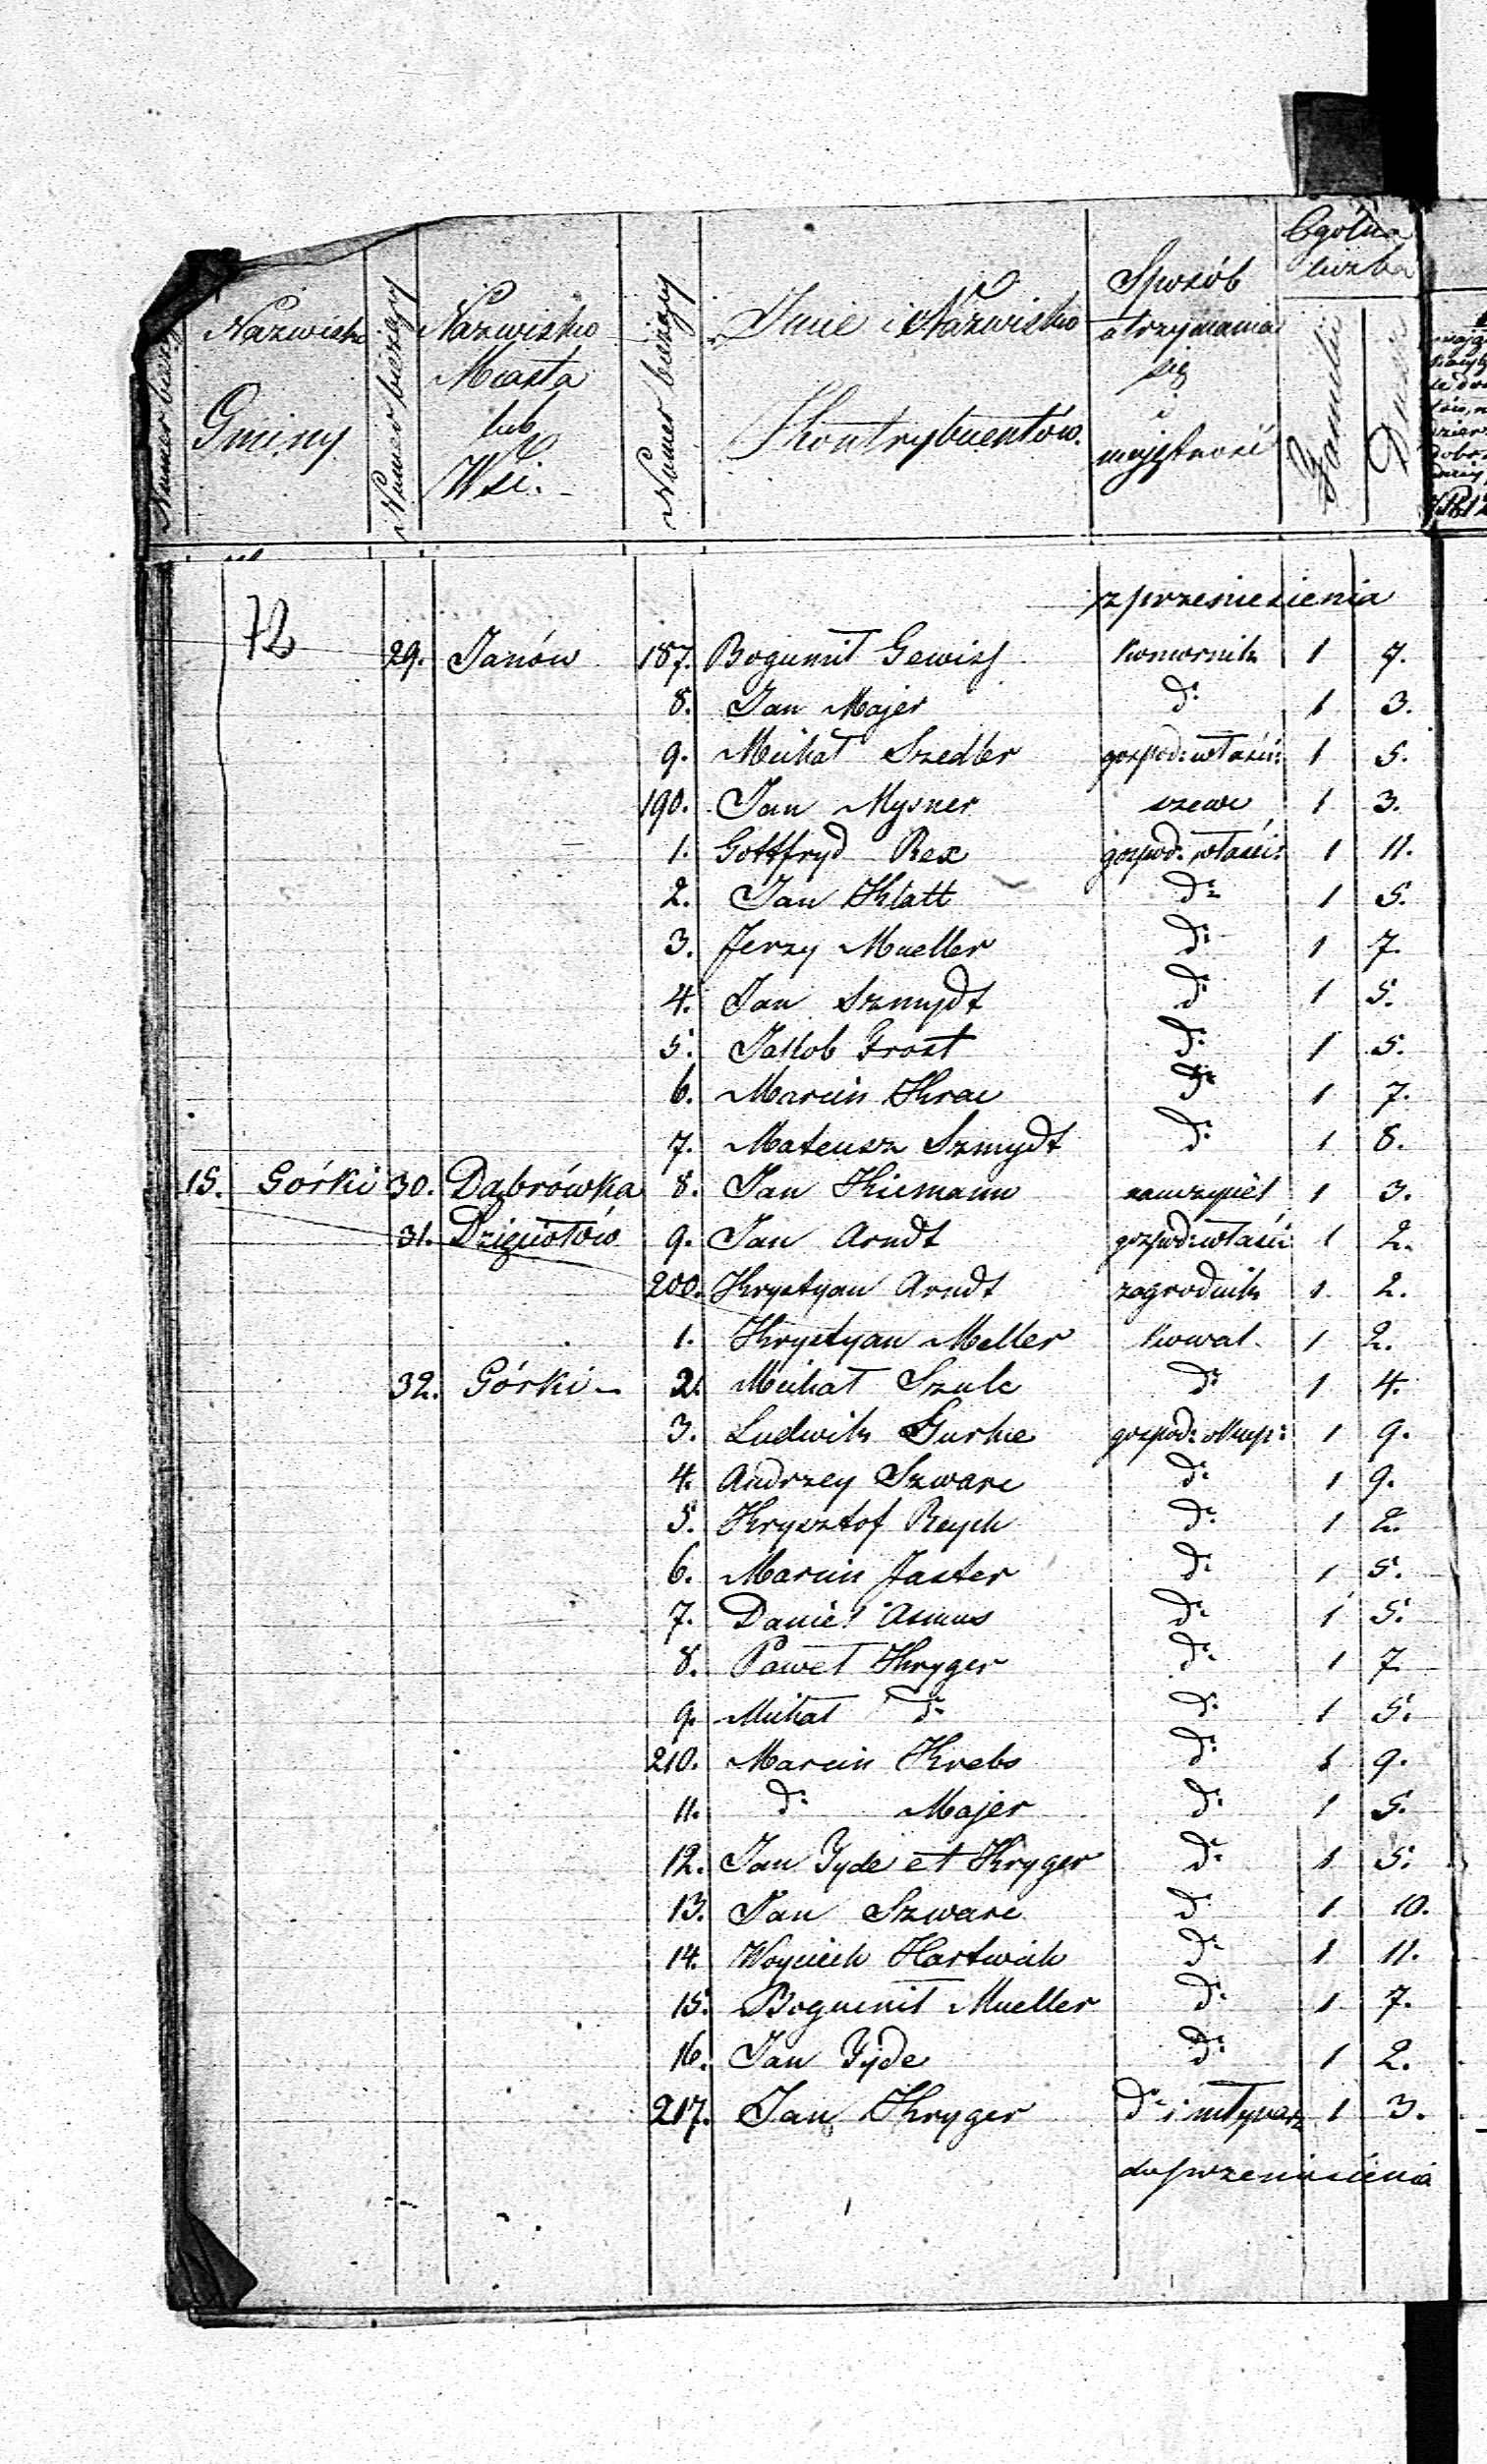 Numer bieżący Nazwisko Gminy Numer bieżący Nazwisko Miasta lub Wsi. Numer bieżący Imie i Nazwisko Kontrybuentów. Sposób utrzymania się i majętność Ogólna liczba Familii Dusz
z przeniesienia
72
29. Janów 187. Bogumił Gewiss Komornik 1 7.
8. Jan Majer do 1 3.
9. Michał Szedler gospod: właści: 1 5.
190. Jan Mysner szewc 1 3.
1. Gottfryd Rex gospod: właści: 1 11.
2. Jan Klatt do 1 5.
3. Jerzy Mueller do 1 7.
4. Jan Szmydt do 1 5.
5. Jakob Frost do 1 5.
6. Marcin Krac do 1 7.
7. Mateusz Szmydt do 1 8.
15. Górki 30. Dąbrówka 8. Jan Kiemann nauczyciel 1 3.
31. 9. Jan Arndt gospod: właści: 1 2.
200. Krystyan Arndt zagrodnik 1 2.
1. Krystyan Meller Kowal 1 2.
32. Górki 2. Michał Szulc do 1 4.
3. Ludwik Gurke gospod: okup: 1 9.
4. Andrzey Szwarc do 1 9.
5. Krysztof Reych do 1 2.
6. Marcin Jaster do 1 5.
7. Daniel Asmus do 1 5.
8. Paweł Kryger do 1 7.
9. Michał do do 1 5.
210. Marcin Krebs do 1 9.
11. do Majer do 1 5.
12. Jan Tyde et Kryger do 1 5.
13. Jan Szwarc do 1 10.
14. Woyciech Hartwich do 1 11.
15. Bogumił Mueller do 1 7.
16. Jan Tyde do 1 2.
217. Jan Kryger do i młynarz 1 3.
do przeniesienia